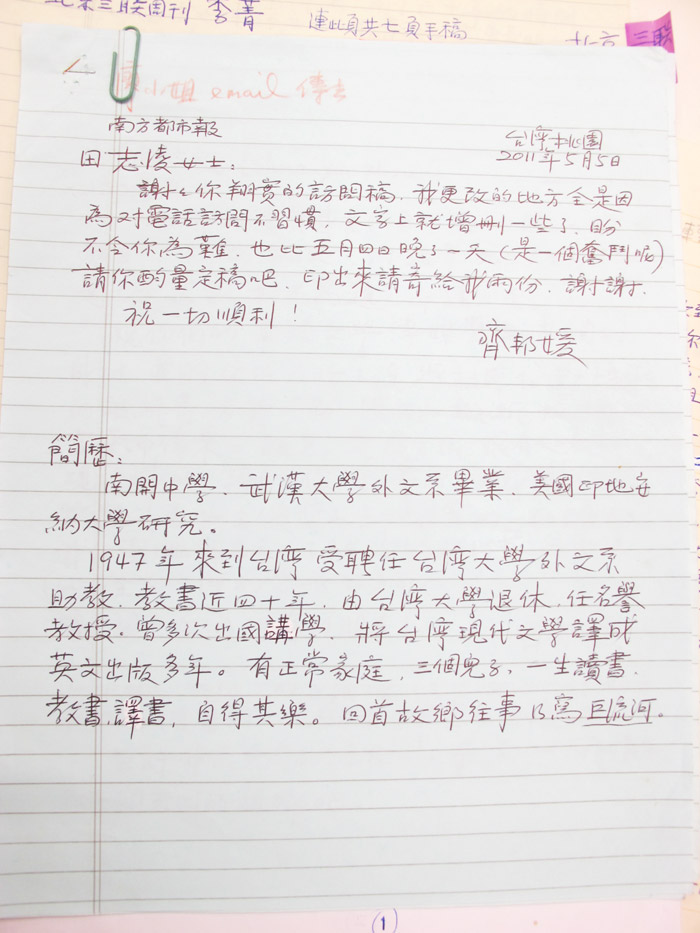 北京三联周刊 李菁
連此頁共七頁手稿
北京 三联
小姐 email 傳去
南方都市報
台灣桃園
2011年5月5日
田志凌女士：
謝々你翔實的訪問稿．我更改的地方全是因
為对電話訪問不習慣，文字上就增刪一些了．盼
不令你為難．也比五月四日晚了一天（是一個奮鬥呢）
請你酌量定稿吧．印出來請寄給我兩份．謝謝．
祝一切順利！
齊邦媛
簡歷：
南開中學．武漢大學外文系畢業．美國印地安
納大學研究。
1947年來到台灣受聘任台灣大學外文系
助教．教書近四十年．由台灣大學退休，任名譽
教授．曾多次出國講學．將台灣現代文學譯成
英文出版多年。有正常家庭，三個兒子，一生讀書．
教書．譯書，自得其樂。回首故鄉往事乃寫巨流河。
1